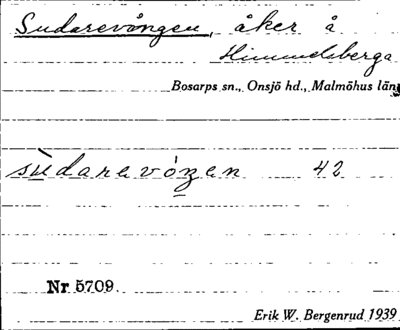 Sudarevången, åker å
Himmelsberga
Bosarps sn., Onsjö hd., Malmöhus län,
sùdarevóŋen 42
Nr 5709
Erik W. Bergenrud 1939